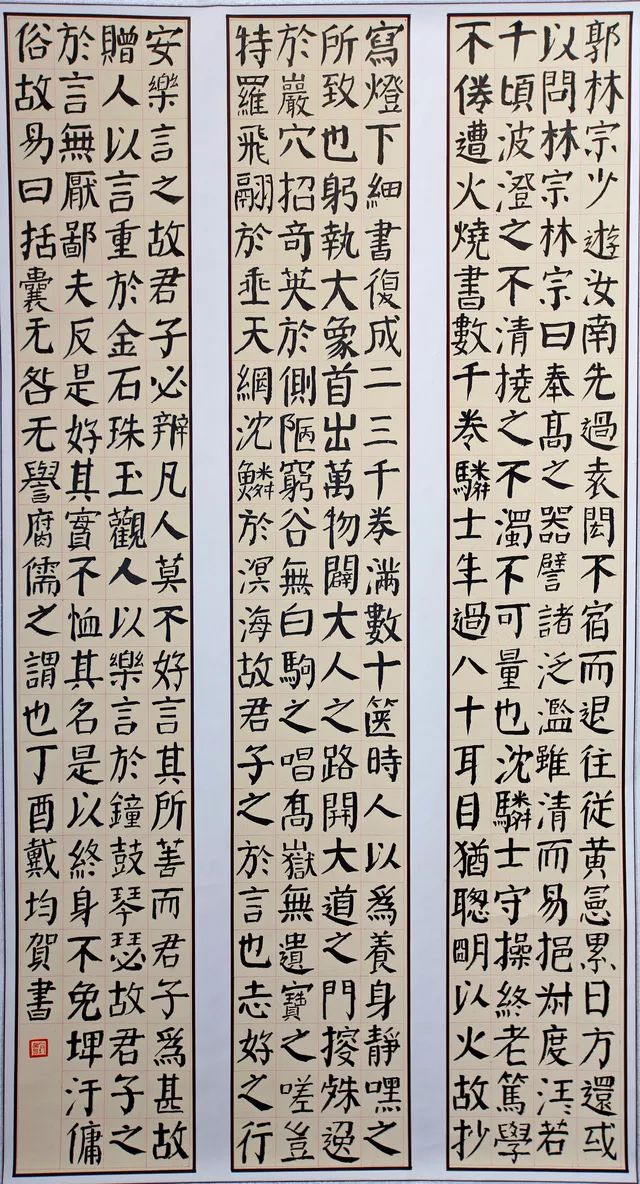 郭林宗少遊汝南先過袁閎不宿而退往従黄憲累日方還或
以問林宗林宗曰奉髙之器譬諸泛濫雖清而易挹叔度汪汪若
千頃波澄之不清撓之不濁不可量也沈驎士守操終老篤學
不倦遭火燒書數千卷驎士年過八十耳目猶聰明以火故抄
寫燈下細書復成二三千卷滿數十篋時人以爲養身靜嘿之
所致也躬執大象首出萬物闢大人之路開大道之門搜殊逸
於巖穴招奇英於側陋窮谷無白駒之唱髙嶽無遺寶之嗟豈
特羅飛翮於垂天網沈鱗於溟海故君子之於言也志好之行
安樂言之故君子必辨凡人莫不好言其所善而君子爲甚故
贈人以言重於金石珠玉觀人以樂言於鐘鼓琴瑟故君子之
於言無厭鄙夫反是好其實不恤其名是以終身不免埤汙傭
俗故易曰括囊无咎无譽腐儒之謂也丁酉戴均賀書